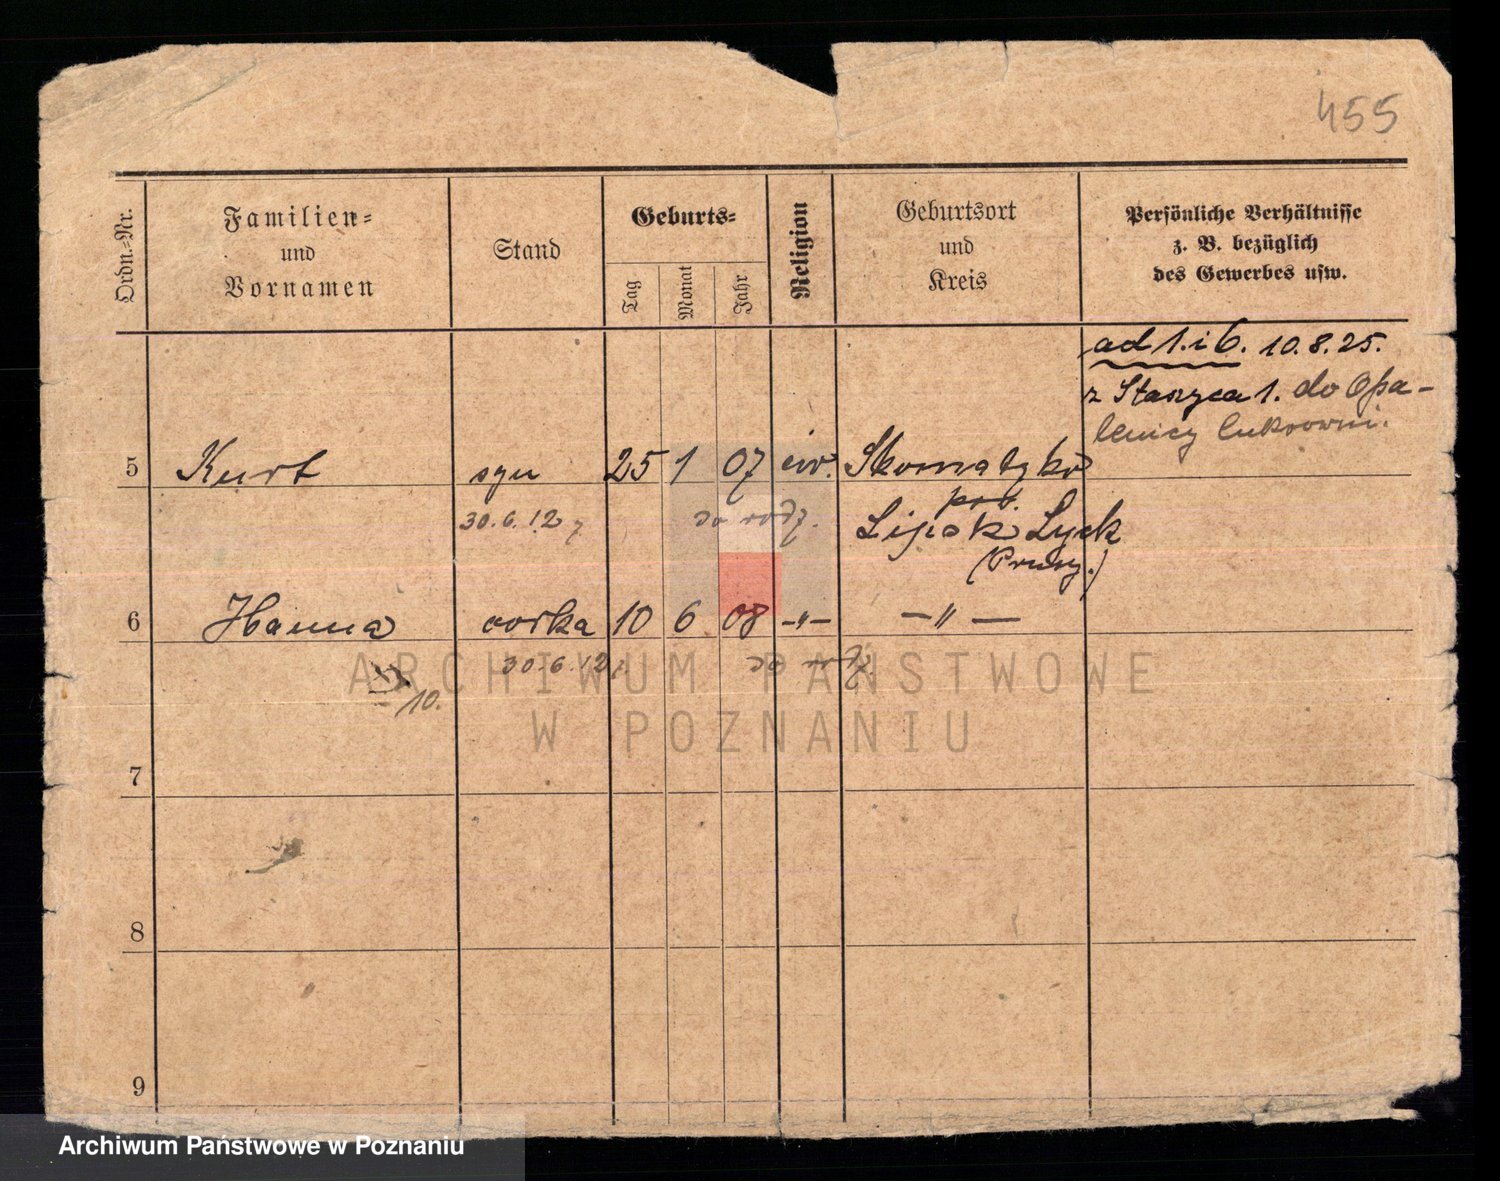 455
Ordn.-Nr.
Familien-
und
Vornamen
Stand
Geburts-
Tag
Monat
Jahr
Religion
Geburtsort
und
Kreis
Persönliche Verhältnisse
z. B. bezüglich
des Gewerbes usw.
ad 1. i 6. 10.8.25.
z Staszyca 1. do Opa-
lenicy cukrowni.
5 Kurt syn 25 1 07 ew.
30.6.12 do rodz.
prb.
Lipsk Lyck
(Prusy.)
6 Hanna córka 10 6 08 -"- -"-
30.6.12 do rodz.
10.
7
8
9
ARCHIWUM PAŃSTWOWE
W POZNANIU
Archiwum Państwowe w Poznaniu